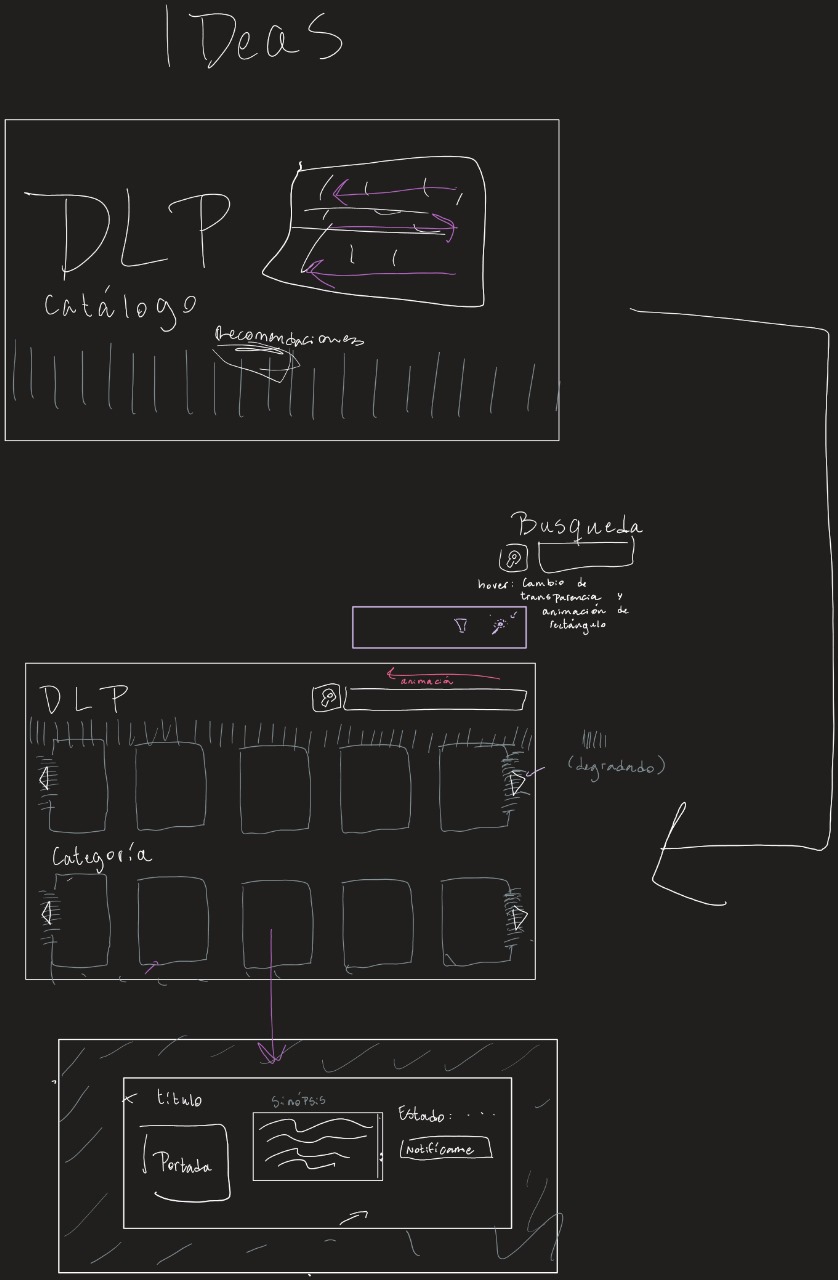 IDeas
DLP
catálogo
Recomendaciones
Busqueda
hover: Cambio de
transparencia y
animación de
rectángulo
animación
DLP
(degradado)
Categoría
título
Sinópsis
Estado: . . .
Notifícame
Portada